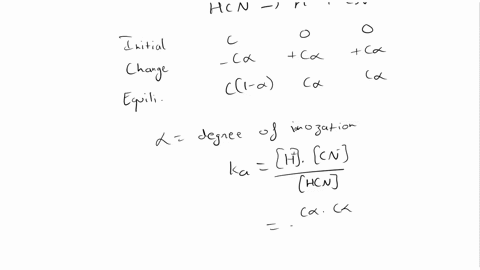 HCN → H + CN
Initial C O O
Change -Cα +Cα +Cα
Equili. C(1-α) Cα Cα
α = degree of inozation
Ka = [H⁺]. [CN⁻]
[HCN]
= Cα. Cα